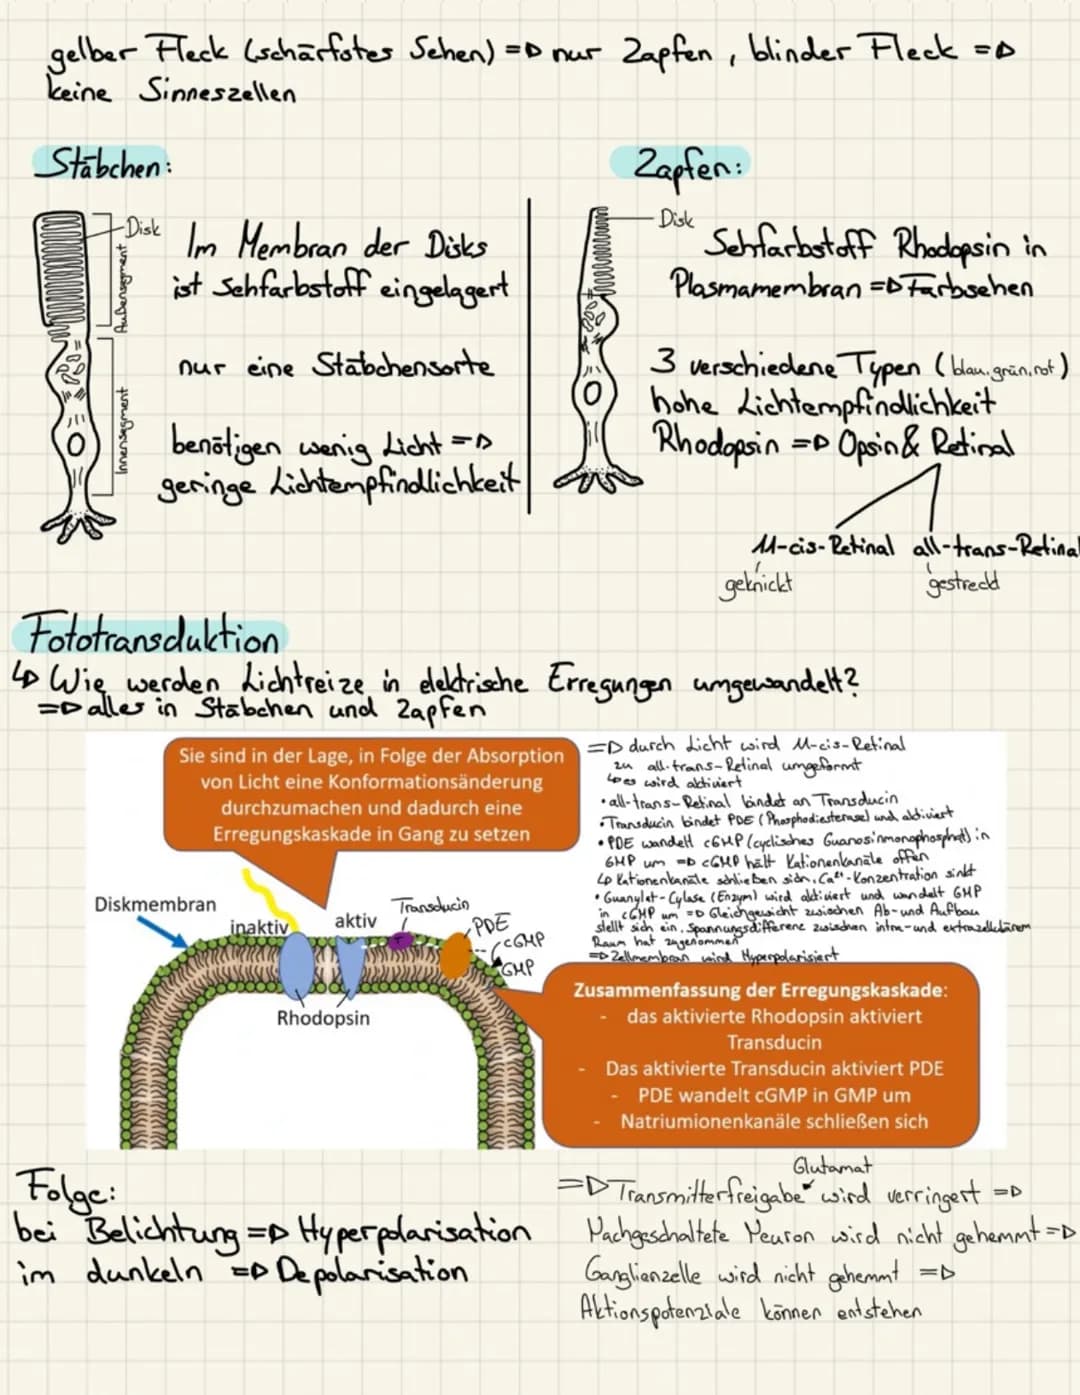 gelber Fleck (schärfstes Sehen) => nur Zapfen, blinder Fleck =>
keine Sinneszellen
Stäbchen:
Disk
Außensegment
Innensegment
Im Membran der Disks
ist Sehfarbstoff eingelagert
nur eine Stäbchensorte
benötigen wenig Licht =>
geringe Lichtempfindlichkeit
Zapfen:
Disk
Sehfarbstoff Rhodopsin in
Plasmamembran => Farbsehen
3 verschiedene Typen (blau, grün, rot)
hohe Lichtempfindlichkeit
Rhodopsin => Opsin & Retinal
11-cis-Retinal all-trans-Retinal
geknickt gestreckt
Fototransduktion
↳ Wie werden Lichtreize in elektrische Erregungen umgewandelt?
=> alles in Stäbchen und Zapfen
Sie sind in der Lage, in Folge der Absorption
von Licht eine Konformationsänderung
durchzumachen und dadurch eine
Erregungskaskade in Gang zu setzen
Diskmembran
inaktiv
aktiv
Transducin
T
PDE
cGMP
GMP
Rhodopsin
=> durch Licht wird 11-cis-Retinal
zu all-trans-Retinal umgeformt
↳ es wird aktiviert
• all-trans-Retinal bindet an Transducin
• Transducin bindet PDE (Phosphodiesterase) und aktiviert
• PDE wandelt cGMP (cyclisches Guanosinmonophosphat) in
GMP um => cGMP hält Kationenkanäle offen
↳ Kationenkanäle schließen sich, Ca²⁺-Konzentration sinkt
• Guanylat-Cylase (Enzym) wird aktiviert und wandelt GMP
in cGMP um => Gleichgewicht zwischen Ab- und Aufbau
stellt sich ein, Spannungsdifferenz zwischen intra- und extrazellulärem
Raum hat zugenommen
=> Zellmembran wird Hyperpolarisiert
Zusammenfassung der Erregungskaskade:
- das aktivierte Rhodopsin aktiviert
Transducin
- Das aktivierte Transducin aktiviert PDE
- PDE wandelt cGMP in GMP um
- Natriumionenkanäle schließen sich
Folge:
bei Belichtung => Hyperpolarisation
im dunkeln => Depolarisation
Glutamat
=> Transmitterfreigabe wird verringert =>
Nachgeschaltete Neuron wird nicht gehemmt =>
Ganglienzelle wird nicht gehemmt =>
Aktionspotenziale können entstehen